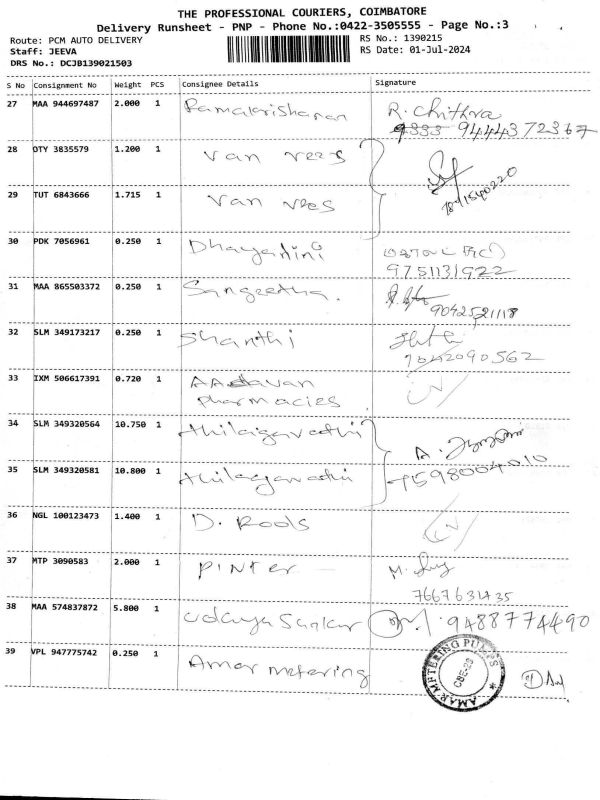 THE PROFESSIONAL COURIERS, COIMBATORE
Delivery Runsheet - PNP - Phone No.:0422-3505555 - Page No.:3
Route: PCM AUTO DELIVERY
RS No.: 1390215
Staff: JEEVA
RS Date: 01-Jul-2024
DRS No.: DCJB139021503
S No Consignment No Weight PCS Consignee Details Signature
27 MAA 944697487 2.000 1 Ramakrishanan R. Chithra
9444372367
28 OTY 3835579 1.200 1 Van Vees
29 TUT 6843666 1.715 1 Van Vees
30 PDK 7056961 0.250 1 Dhayanini
9751131922
31 MAA 865503372 0.250 1 Sangeetha.
32 SLM 349173217 0.250 1 Shanthi
7042090562
33 IXM 506617391 0.720 1 AAdavan
Pharmacies
34 SLM 349320564 10.750 1 thilagavathi A.
35 SLM 349320581 10.800 1 thilagavathi 9598004010
36 NGL 100123473 1.400 1 D. Rools
37 MTP 3090583 2.000 1 PINTER M.
7667631435
38 MAA 574837872 5.800 1 Udaya Sankar 9488774490
39 VPL 947775742 0.250 1 Amar metering
AMAR METERING PUMPS